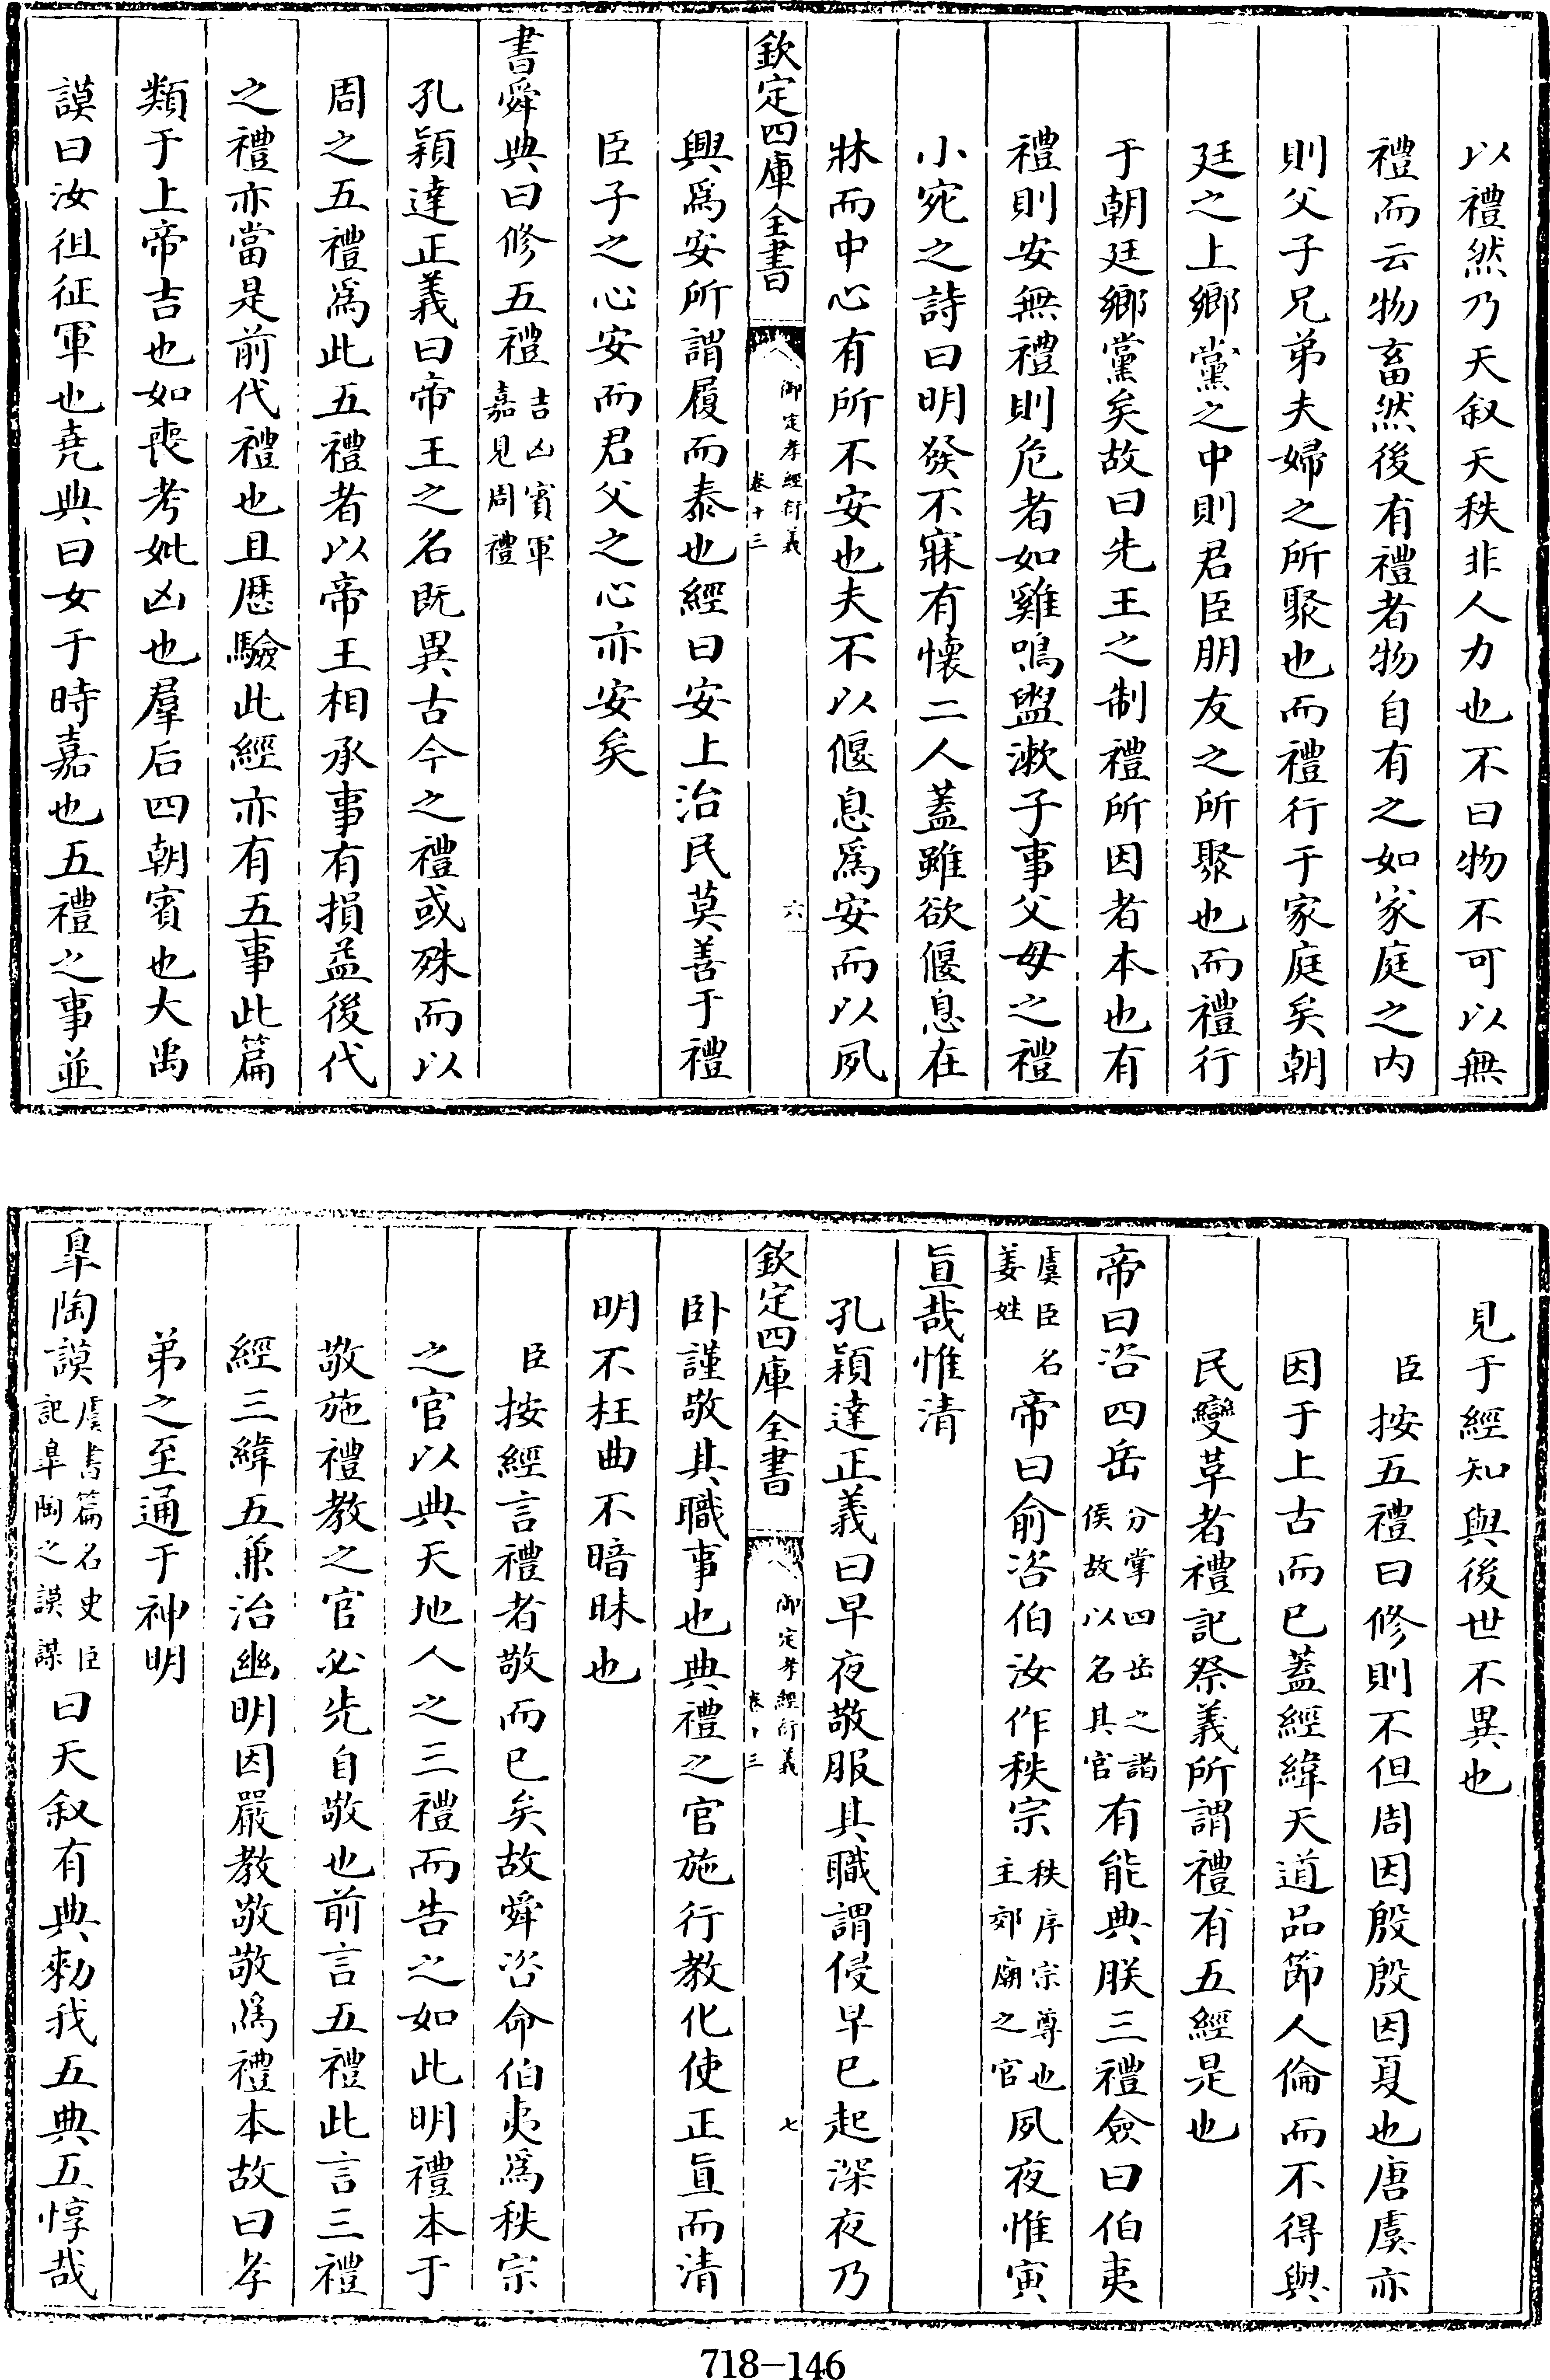 以禮然乃天叙天秩非人力也不曰物不可以無
禮而云物畜然後有禮者物自有之如家庭之内
則父子兄弟夫婦之所聚也而禮行于家庭矣朝
廷之上鄉黨之中則君臣朋友之所聚也而禮行
于朝廷鄉黨矣故曰先王之制禮所因者本也有
禮則安無禮則危者如雞鳴盥漱子事父母之禮
小宛之詩曰明發不寐有懷二人蓋雖欲偃息在
牀而中心有所不安也夫不以偃息爲安而以夙
欽定四庫全書
御定孝經衍義
卷十三
六
興爲安所謂履而泰也經曰安上治民莫善于禮
臣子之心安而君父之心亦安矣
書舜典曰修五禮吉凶賓軍嘉見周禮
孔穎達正義曰帝王之名既異古今之禮或殊而以
周之五禮爲此五禮者以帝王相承事有損益後代
之禮亦當是前代禮也且歷驗此經亦有五事此篇
類于上帝吉也如喪考妣凶也羣后四朝賓也大禹
謨曰汝徂征軍也堯典曰女于時嘉也五禮之事並
見于經知與後世不異也
臣按五禮曰修則不但周因殷殷因夏也唐虞亦
因于上古而已蓋經緯天道品節人倫而不得與
民變革者禮記祭義所謂禮有五經是也
帝曰咨四岳分掌四岳之諸侯故以名其官有能典朕三禮僉曰伯夷
虞臣名姜姓帝曰俞咨伯汝作秩宗秩序宗尊也主郊廟之官夙夜惟寅
直哉惟清
孔穎達正義曰早夜敬服其職謂侵早已起深夜乃
欽定四庫全書
御定孝經衍義
卷十三
七
卧謹敬其職事也典禮之官施行教化使正直而清
明不枉曲不暗昧也
臣按經言禮者敬而已矣故舜咨命伯夷爲秩宗
之官以典天地人之三禮而告之如此明禮本于
敬施禮教之官必先自敬也前言五禮此言三禮
經三緯五兼治幽明因嚴教敬敬爲禮本故曰孝
弟之至通于神明
臯陶謨虞書篇名史臣記臯陶之謨謀曰天叙有典勅我五典五惇哉
718-146